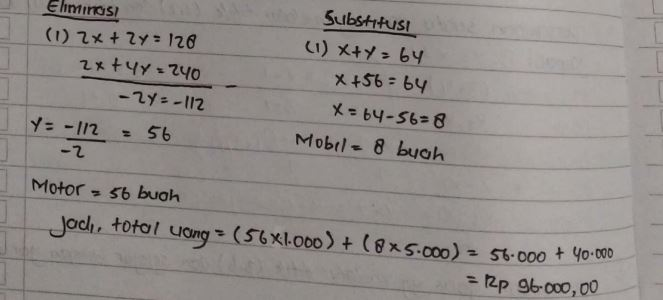 Eliminasi
(1) 2x + 2y = 128
2x + 4y = 240 -
-2y = -112
y = -112 / -2 = 56
Motor = 56 buah
Substitusi
(1) x+y = 64
x + 56 = 64
x = 64-56 = 8
Mobil = 8 buah
Jadi, total uang = (56x1.000) + (8x5.000) = 56.000 + 40.000
= Rp 96.000,00